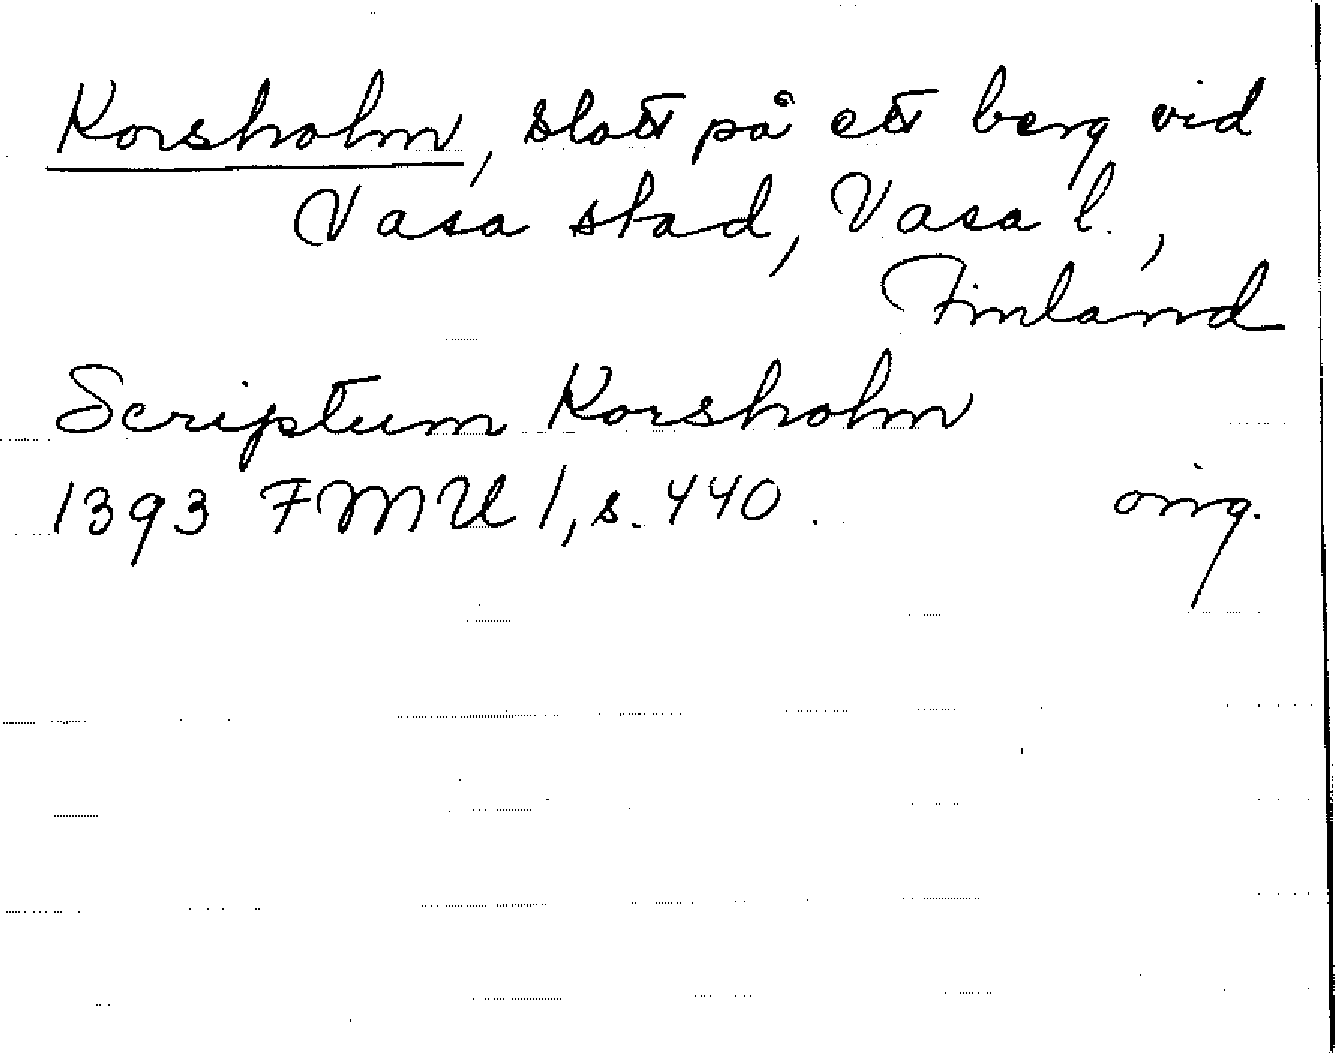 Korsholm, slott på ett berg vid
Vasa stad, Vasa l.,
Finland
Scriptum Korsholm
1393 FMU 1, s. 440. orig.